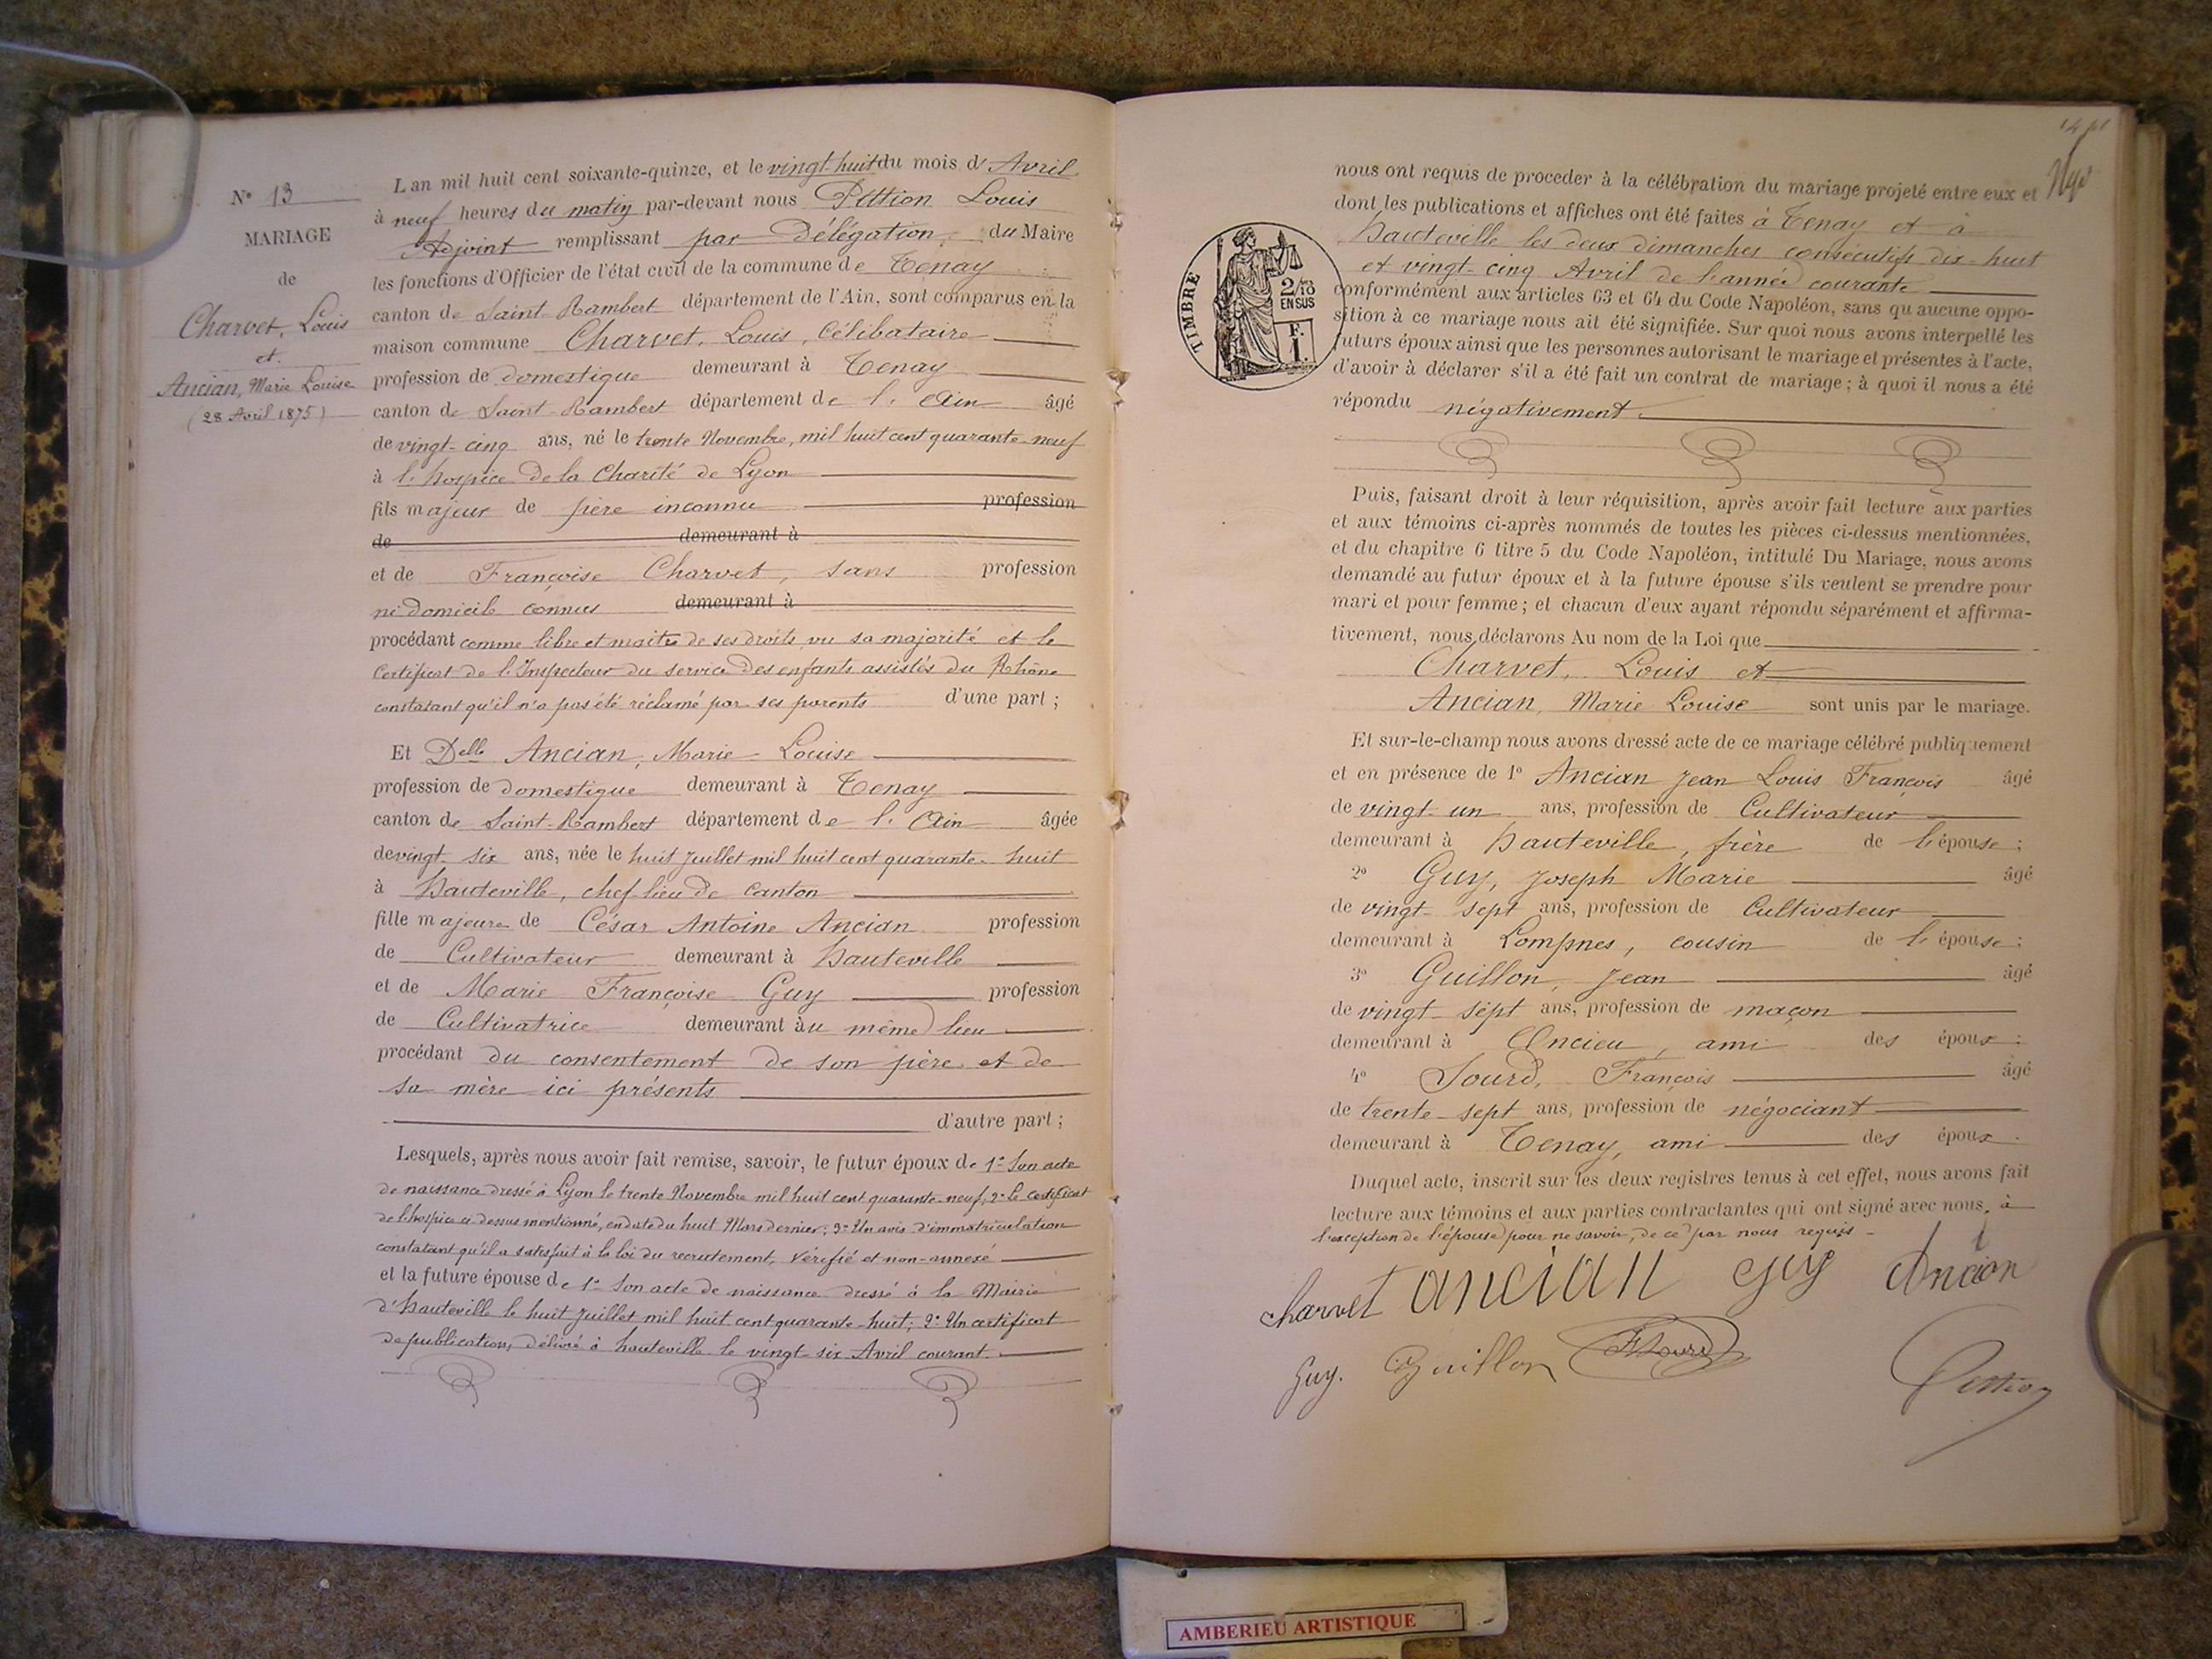 N° 13
MARIAGE
de
Charvet, Louis
et
Ancian, Marie Louise
(28 Avril 1875)
L an mil huit cent soixante-quinze, et le vingt-huit du mois d' Avril
à neuf heures du matin par-devant nous Pittion Louis
Adjoint remplissant par Délégation, du Maire
les fonctions d'Officier de l'état civil de la commune de Tenay
canton de Saint-Rambert département de l'Ain, sont comparus en la
maison commune Charvet, Louis, Célibataire
profession de domestique demeurant à Tenay
canton de Saint-Rambert département de l'Ain âgé
de vingt-cinq ans, né le trente Novembre, mil huit cent quarante-neuf
à l'hospice de la Charité de Lyon
fils majeur de père inconnu profession
de demeurant à
et de Françoise Charvet, sans profession
ni domicile connus demeurant à
procédant comme libre et maître de ses droits vu sa majorité et le
Certificat de l'Inspecteur du service des enfants assistés du Rhône
constatant qu'il n'a pas été réclamé par ses parents d'une part ;
Et Delle Ancian, Marie-Louise
profession de domestique demeurant à Tenay
canton de Saint-Rambert département de l'Ain âgée
de vingt-six ans, née le huit Juillet mil huit cent quarante-huit
à Hauteville, chef-lieu de Canton
fille majeure de César Antoine Ancian profession
de Cultivateur demeurant à Hauteville
et de Marie Françoise Guy profession
de Cultivatrice demeurant àu même lieu
procédant du consentement de son père et de
sa mère ici présents
d'autre part ;
Lesquels, après nous avoir fait remise, savoir, le futur époux de 1° Son acte
de naissance dressé à Lyon le trente Novembre mil huit cent quarante-neuf; 2° le certificat
de l'hospice ci-dessus mentionné, en date du huit Mars dernier; 3° Un avis d'immatriculation
constatant qu'il a satisfait à la loi du recrutement, vérifié et non-annexé
et la future épouse de 1° Son acte de naissance dressé à la Mairie
d'Hauteville le huit Juillet mil huit cent quarante-huit; 2° Un certificat
de publication, délivré à hauteville le vingt-six Avril courant.
nous ont requis de proceder à la célébration du mariage projeté entre eux et
dont les publications et affiches ont été faites à Tenay et à
Hauteville les deux dimanches consécutifs dix-huit
et vingt-cinq Avril de l'année courante
conformément aux articles 63 et 64 du Code Napoléon, sans qu aucune oppo-
sition à ce mariage nous ait été signifiée. Sur quoi nous avons interpellé les
futurs époux ainsi que les personnes autorisant le mariage et présentes à l'acte,
d'avoir à déclarer s'il a été fait un contrat de mariage ; à quoi il nous a été
répondu négativement.
TIMBRE
2/10
EN SUS
F.
1.
Puis, faisant droit à leur réquisition, après avoir fait lecture aux parties
et aux témoins ci-après nommés de toutes les pièces ci-dessus mentionnées,
et du chapitre 6 titre 5 du Code Napoléon, intitulé Du Mariage, nous avons
demandé au futur époux et à la future épouse s'ils veulent se prendre pour
mari et pour femme ; et chacun d'eux ayant répondu séparément et affirma-
tivement, nous déclarons Au nom de la Loi que
Charvet, Louis et
Ancian, Marie Louise sont unis par le mariage.
Et sur-le-champ nous avons dressé acte de ce mariage célébré publiquement
et en présence de 1° Ancian Jean Louis François âgé
de vingt-un ans, profession de Cultivateur
demeurant à Hauteville, frère de l'épouse ;
2° Guy, Joseph Marie âgé
de vingt-sept ans, profession de Cultivateur
demeurant à Lompnes, cousin de l'épouse ;
3° Guillon, Jean âgé
de vingt-sept ans, profession de maçon
demeurant à Oncieu, ami des époux ;
4° Sourd, François âgé
de trente-sept ans, profession de négociant
demeurant à Tenay, ami des époux.
Duquel acte, inscrit sur les deux registres tenus à cet effet, nous avons fait
lecture aux témoins et aux parties contractantes qui ont signé avec nous, à
l'exception de l'épouse pour ne savoir, de ce par nous requis
charvet ancian guy Ancian
Guy. Guillon F Sourd Pittion
AMBERIEU ARTISTIQUE